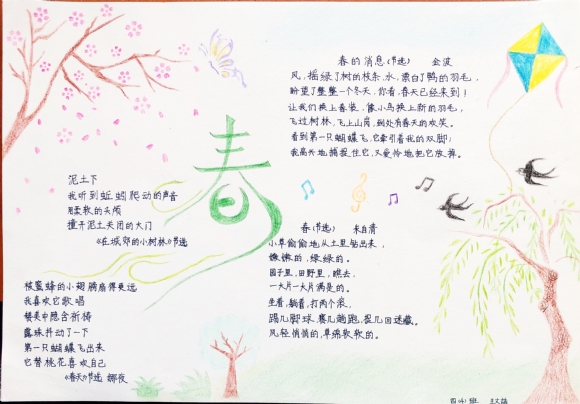 春的消息(节选) 金波
风,摇绿了树的枝条,水,漂白了鸭的羽毛,
盼望了整整一个冬天,你看,春天已经来到!
让我们换上春装,像小鸟换上新的羽毛,
飞过树林,飞上山岗,到处有春天的欢笑。
看到第一只蝴蝶飞,它牵引着我的双脚;
我高兴地捕捉住它,又爱怜地把它放掉。
春
泥土下
我听到蚯蚓爬动的声音
用柔软的头颅
撞开泥土关闭的大门
《在城郊的小树林》节选
春(节选) 朱自清
小草偷偷地从土里钻出来,
嫩嫩的,绿绿的。
园子里,田野里,瞧去,
一大片一大片满是的。
坐着,躺着,打两个滚,
踢几脚球,赛几趟跑,捉几回迷藏。
风轻悄悄的,草绵软软的。
被蜜蜂的小翅膀扇得更远
我喜欢它歌唱
赞美中隐含祈祷
露珠抖动了一下
第一只蝴蝶飞出来
它替桃花喜欢自己
《春天》节选 娜夜